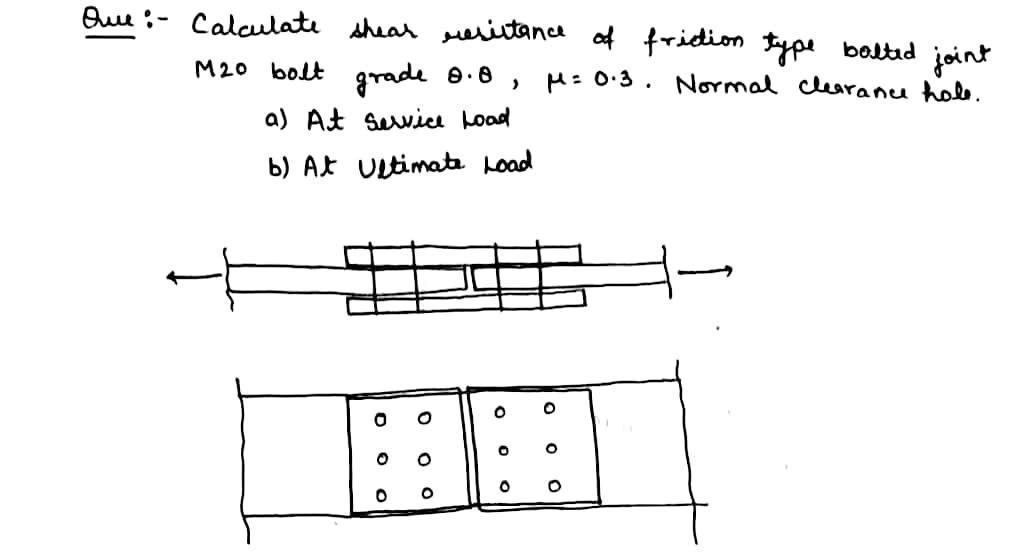 Que :- Calculate shear resistance of friction type bolted joint
M20 bolt grade 8.8 , μ = 0.3 . Normal clearance hole.
a) At Service Load
b) At Ultimate Load